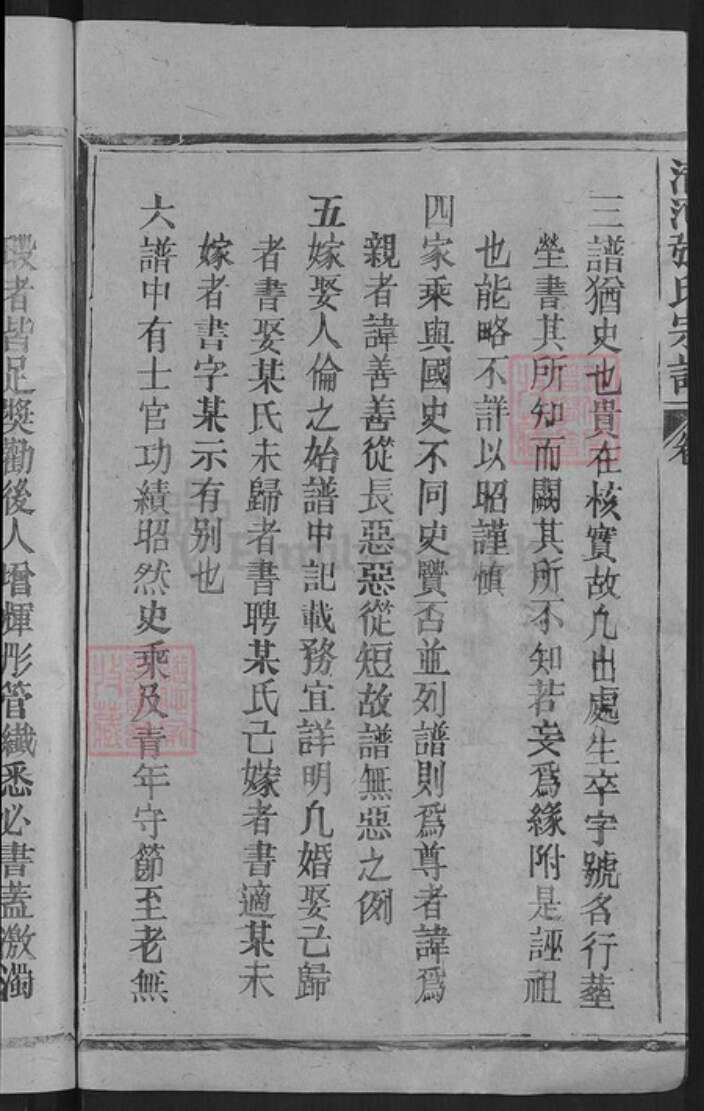 三譜猶史也貴在核實故凡出處生卒字號名行墓
塋書其所知而闕其所不知若妄爲緣附是誣祖
也能略不詳以昭謹慎
四家乘與國史不同史賢否並列譜則爲尊者諱爲
親者諱善善從長惡惡從短故譜無惡之例
五嫁娶人倫之始譜中記載務宜詳明凡婚娶已歸
者書娶某氏未歸者書聘某氏已嫁者書適某未
嫁者書字某示有别也
六譜中有士官功績昭然史乘及青年守節至老無
者皆足獎勸後人增輝彤管纖悉必書蓋激濁
氏宗譜